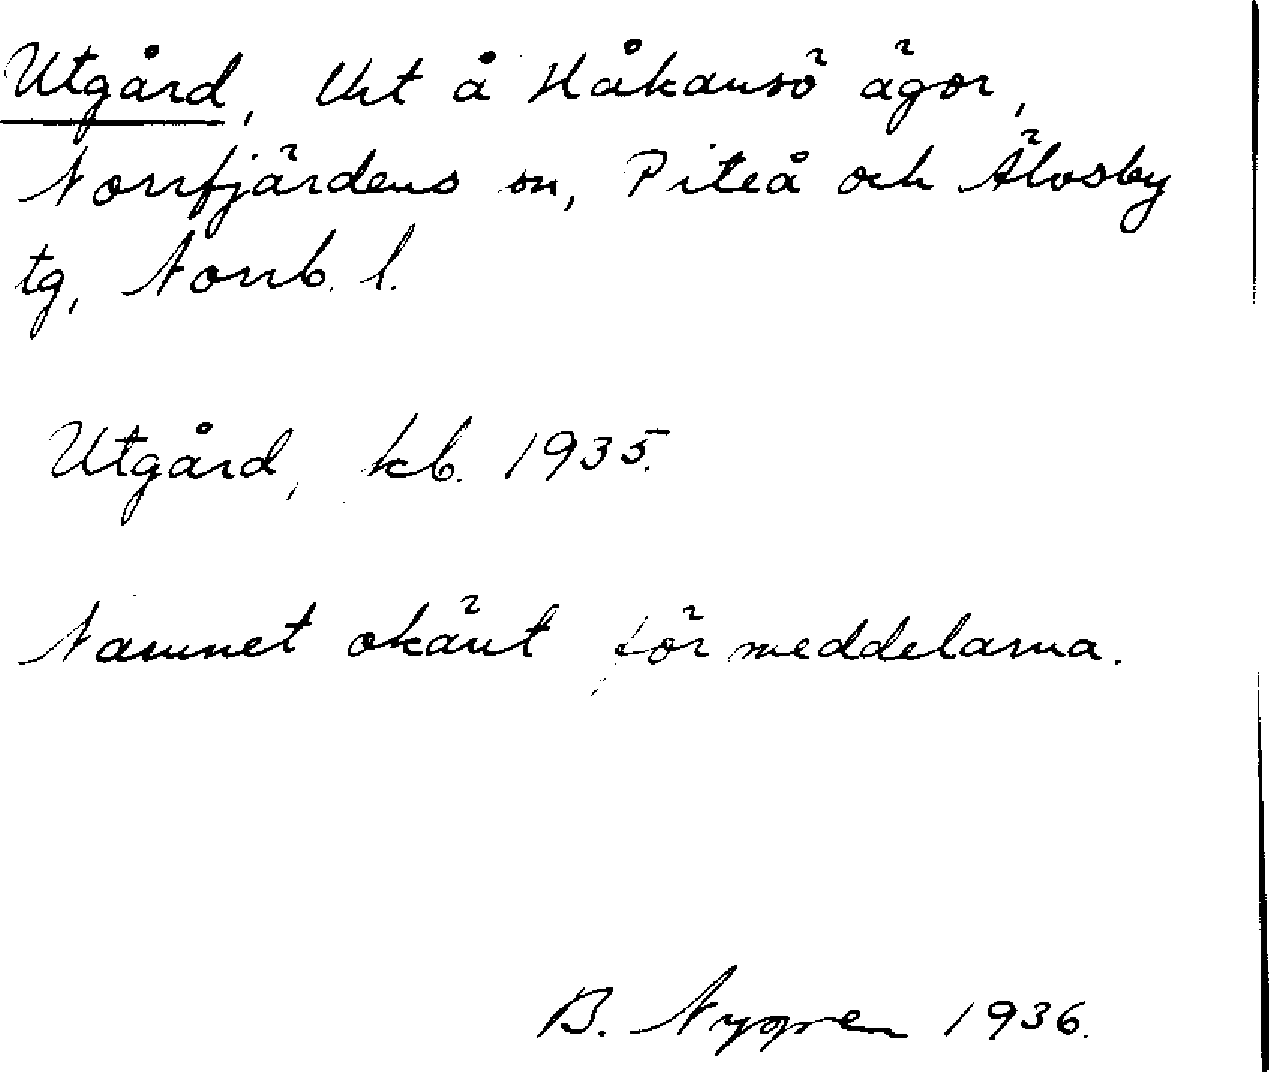 Utgård, Urt å Håkansö ägor,
Norrfjärdens sn, Piteå och Älvsby
tg, Norrb. l.
Utgård, kb. 1935.
Namnet okänt för meddelarna.
B. Nygren 1936.